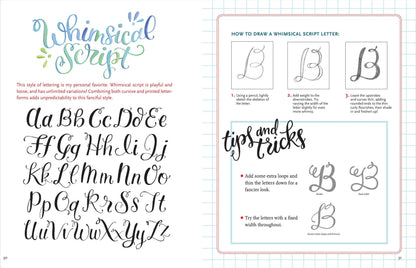 Whimsical
Script
This style of lettering is my personal favorite. Whimsical script is playful and
loose, and has unlimited variations! Combining both cursive and printed letter-
forms adds unpredictability to this fanciful style.
Aa Bb Cc Dd Ee
Ff Gg Hh Ii Jj
Kk Ll Mm Nn Oo
Pp Qq Rr Ss Tt
Uu Vv Ww Xx Yy Zz
HOW TO DRAW A WHIMSICAL SCRIPT LETTER:
B B B
1. Using a pencil, lightly
sketch the skeleton of
the letter.
2. Add weight to the
downstrokes. Try
varying the width of the
letter slightly for even
more whimsy.
3. Leave the upstrokes
and curves thin, adding
rounded ends to the thin
curly flourishes, then shade
in and finesse up!
tips and
tricks
Add some extra loops and
thin the letters down for a
fancier look.
B B
Try the letters with a fixed
width throughout.
B